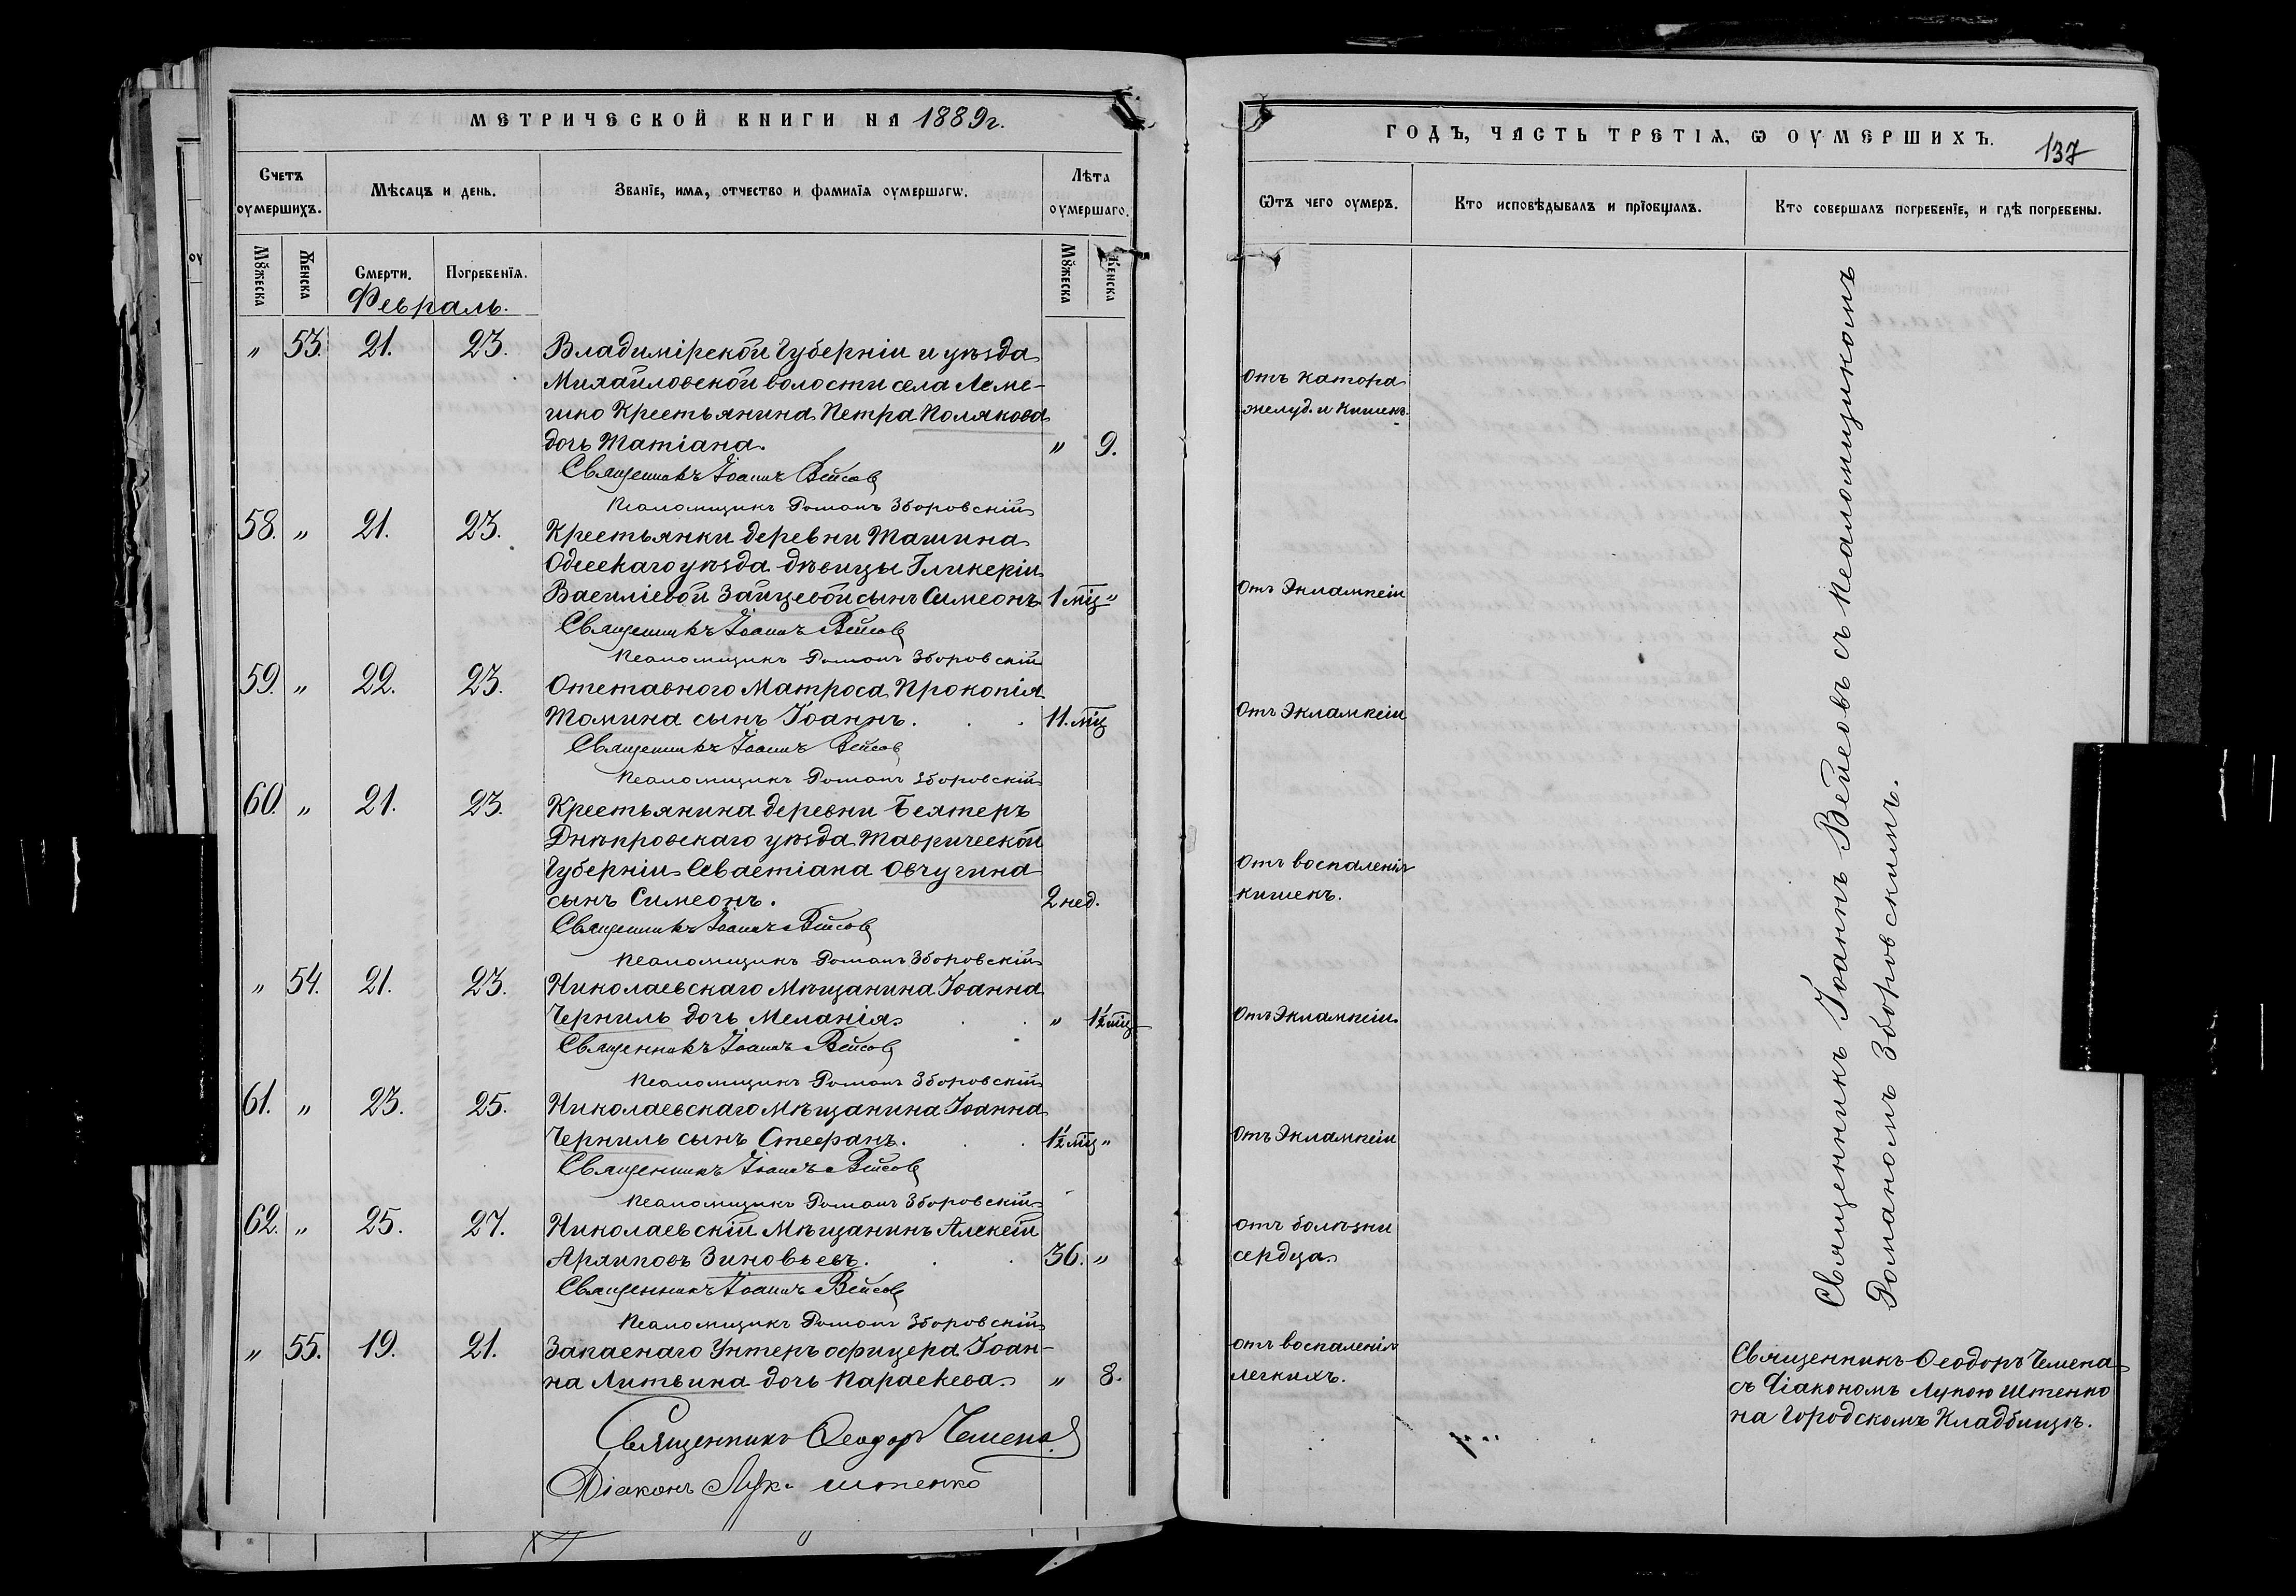 МЕТРИЧЕСКОЙ КНИГИ НА 1889 г.
Счетъ оумершихъ.
Мѣсяцъ и день.
Званїе, имя, отчество и фамилїя оумершагѡ.
Лѣта оумершаго.
Мꙋжеска
Женска
Смерти.
Погребенїя.
Мꙋжеска
Женска
Февраль.
" 53. 21. 23. Владимірской Губерніи и уѣзда
Михайловской волости села Леме-
шко Крестьянина Петра Полякова
дочь Татіана. " 9.
Священникъ Іоаннъ Вейсов
Псаломщикъ Романъ Зборовскій
58. " 21. 23. Крестьянки деревни Ташина
Одесскаго уѣзда дѣвицы Гликеріи
Василіевой Зайцевой сынъ Симеонъ 1 мц "
Священникъ Іоаннъ Вейсов
Псаломщикъ Романъ Зборовскій
59. " 22. 23. Отставного Матроса Прокопія
Томина сынъ Іоаннъ. 11. мц
Священникъ Іоаннъ Вейсов
Псаломщикъ Романъ Зборовскій
60. " 21. 23. Крестьянина деревни Бехтеръ
Днѣпровскаго уѣзда Таврической
Губерніи Севастіана Овчугина
сынъ Симеонъ. 2 нед.
Священникъ Іоаннъ Вейсов
Псаломщикъ Романъ Зборовскій
" 54. 21. 23. Николаевскаго Мѣщанина Іоанна
Черниль дочь Меланія. " 1½ мц
Священникъ Іоаннъ Вейсов
Псаломщикъ Романъ Зборовскій
61. " 23. 25. Николаевскаго Мѣщанина Іоанна
Черниль сынъ Стефанъ. 1½ мц "
Священникъ Іоаннъ Вейсов
Псаломщикъ Романъ Зборовскій
62. " 25. 27. Николаевскій Мѣщанинъ Алексій
Архиповъ Зиновьевъ. 36. "
Священникъ Іоаннъ Вейсов
Псаломщикъ Романъ Зборовскій
" 55. 19. 21. Запаснаго Унтеръ офицера Іоан-
на Литвина дочь Параскева. " 8.
Священникъ Ѳеодоръ Чемена
Діаконъ Лук. Штенко
ГОДЪ, ЧАСТЬ ТРЕТІЯ, Ѡ ОУМЕРШИХЪ.
137
Ѿтъ чего оумеръ.
Кто исповѣдывалъ и прїобщалъ.
Кто совершалъ погребенїе, и гдѣ погребены.
отъ катара
желуд. и кишекъ.
отъ Эклампсіи
отъ Эклампсіи
отъ воспаленія
кишекъ.
отъ Эклампсіи.
отъ Эклампсіи
отъ болѣзни
сердца.
отъ воспаленія
легкихъ.
Священникъ Іоаннъ Вейсовъ съ псаломщикомъ
Романомъ Зборовскимъ.
Священникъ Ѳеодоръ Чемена
съ Діакономъ Лукою Штенко
на Городскомъ Кладбищѣ.